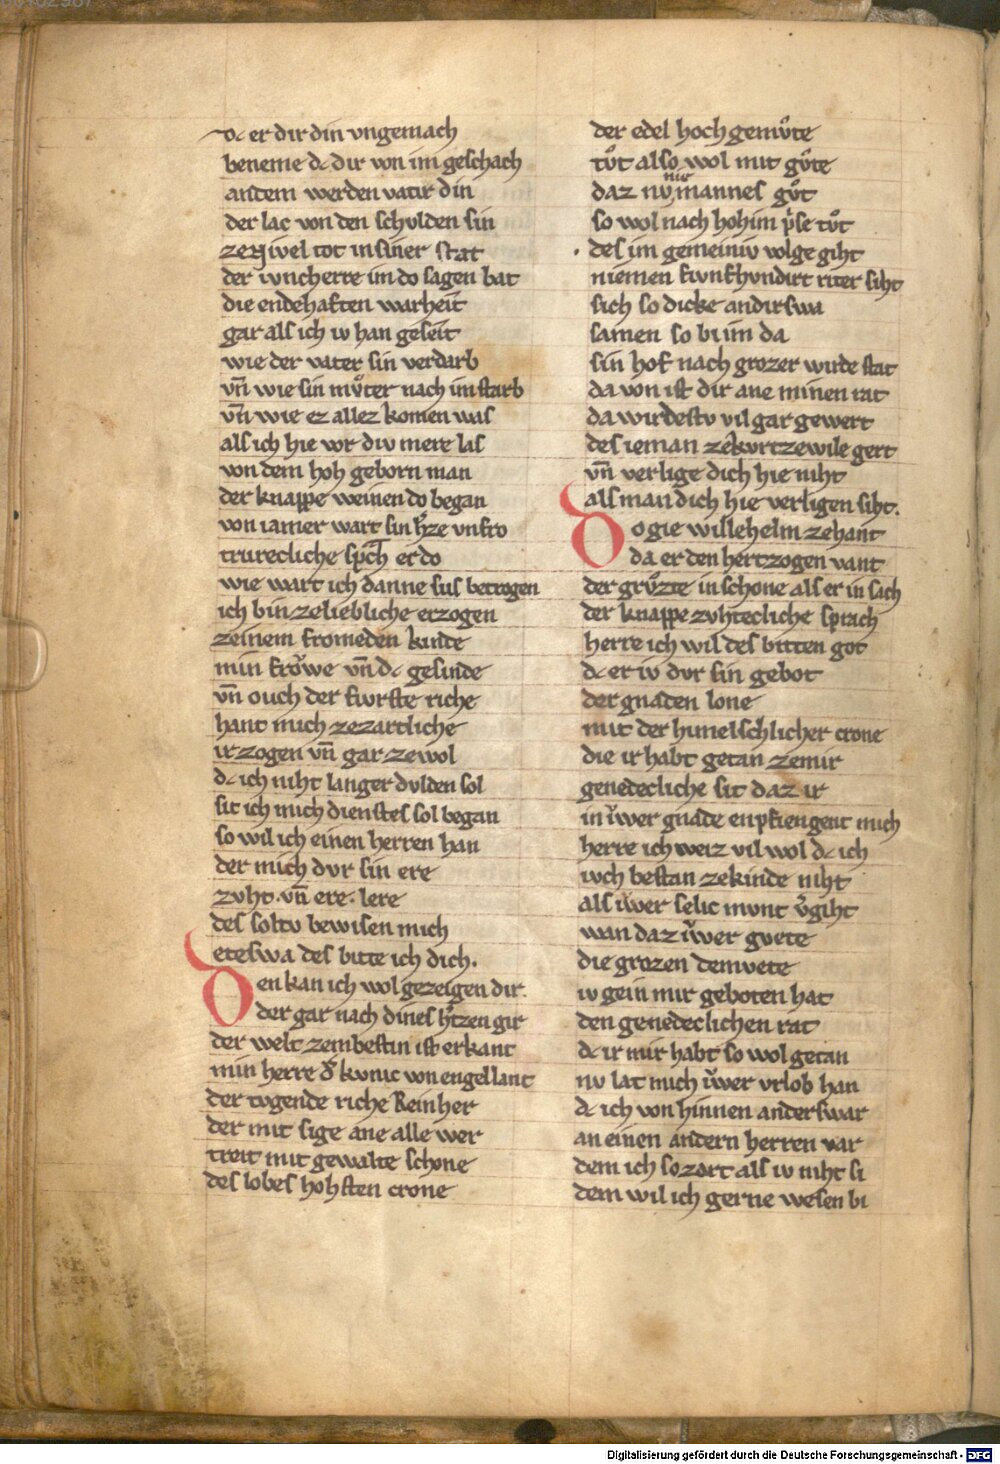 dc er dir din vngemach
beneme dc dir von im geschach
an dem werden vatir din
der lac von den schvlden sin
ze nivel tot in siner stat
der ivncherre im do sagen bat
die endehaften warheit
gar als ich iv han geseit
wie der vater sin verdarb
vn̄ wie sin mvͦter nach im starb
vn̄ wie ez allez komen was
als ich hie vor div mere las
von dem hoh geborn man
der knappe weinen do began
von iamer wart sin h̓ze vnfro
trurecliche sprch er do
wie wart ich danne sus betrogen
ich bin ze liebliche erzogen
zeinem fromeden kinde
min froͮwe vn̄ dc gesinde
vn̄ ouch der fvrste riche
hant mich ze zartliche
irzogen vn̄ gar ze wol
dc ich niht langer dvlden sol
sit ich mich dienstes sol began
so wil ich einen herren han
der mich dvr sin ere
zvht · vn̄ ere · lere
des soltv bewisen mich
eteswa des bitte ich dich.
Den kan ich wol gezeigen dir.
der gar nach dines h̓tzen gir
der welt zem bestin ist erkant
min herre d̓ kvnic von engellant
der tvgende riche Reinher
der mit sige ane alle wer
treit mit gewalte schone
des lobes hohsten crone
der edel hoch gemvͦte
tvͦt also wol mit gvͦte
nie
daz nv mannes gvͦt
so wol nach hohim p̓se tvͦt
· des im gemeiniv volge giht
niemen fivnfhvndirt riter siht
sich so dicke andirswa
samen so bi im da
sin hof nach grozer wirde stat
da von ist dir ane minen rat
da wirdestv vil gar gewert
des ieman ze kvrtzewile gert
vn̄ verlige dich hie niht
als man dich hie verligen siht.
Do gie willehelm zehant
da er den hertzogen vant
der grvͦzte in schone als er in sach
der knappe zvhtecliche sprach
herre ich wil des bitten got
dc er iv dvr sin gebot
der gnaden lone
mit der himelschlicher crone
die ir habt getan ze mir
genedecliche sit daz ir
in iv̓wer gnade enpfiengent mich
herre ich weiz vil wol dc ich
ivch bestan ze kinde niht
als iv̓wer selic mvnt v̓giht
wan daz iv̓wer gvete
die grozen demvete
iv gein mir geboten hat
den genedeclichen rat
dc ir mir habt so wol getan
nv lat mich iv̓wer vrlob han
dc ich von hinnen anderswar
an einen andern herren var
dem ich so zart als iv niht si
dem wil ich gerne wesen bi
Digitalisierung gefördert durch die Deutsche Forschungsgemeinschaft - DFG